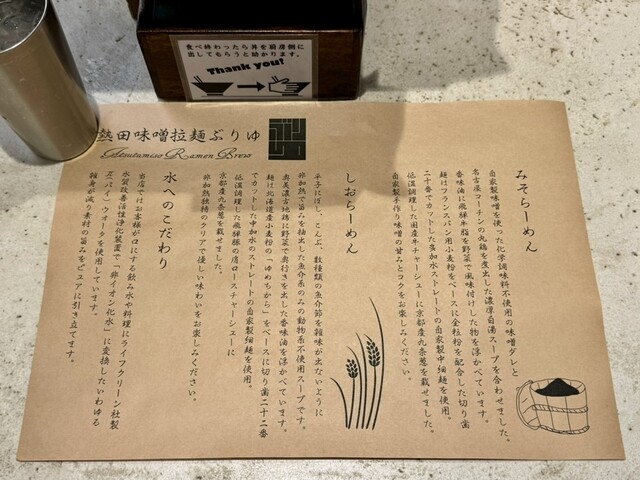 食べ終わったら丼を厨房側に
出してもらうと助かります。
Thank you!
熱田味噌拉麺ぶりゅ
Atsutamiso Ramen Brew
みそらーめん
自家製味噌を使った化学調味料不使用の味噌ダレと
名古屋コーチンの丸鶏を煮出した濃厚白湯スープを合わせました。
香味油に飛騨牛脂を野菜で風味付けした物を浮かべています。
麺はフランスパン用小麦粉をベースに全粒粉を配合した切り歯
二十番でカットした多加水ストレートの自家製中細麺を使用。
低温調理した国産牛チャーシューに京都産九条葱を載せました。
自家製手作り味噌の甘みとコクをお楽しみください。
しおらーめん
平子にぼし、こんぶ、数種類の魚介節を雑味が出ないように
非加熱で旨みを抽出した魚介系のみの動物系不使用スープです。
奥美濃古地鶏に野菜で奥行きを出した香味油を浮かべています。
麺は北海道産小麦粉の「ゆめちから」をベースに切り歯二十二番
でカットした中加水のストレートの自家製細麺を使用。
低温調理した飛騨豚の肩ロースチャーシューに
京都産九条葱を載せました。
非加熱独特のクリアで優しい味わいをお楽しみください。
水へのこだわり
当店ではお客様が口にする飲み水や料理にライフクリーン社製
水質改善活性浄化装置で「非イオン化水」に変換したいわゆる
π（パイ）ウォータを使用しています。
雑身が減り素材の旨みをピュアに引き立てます。